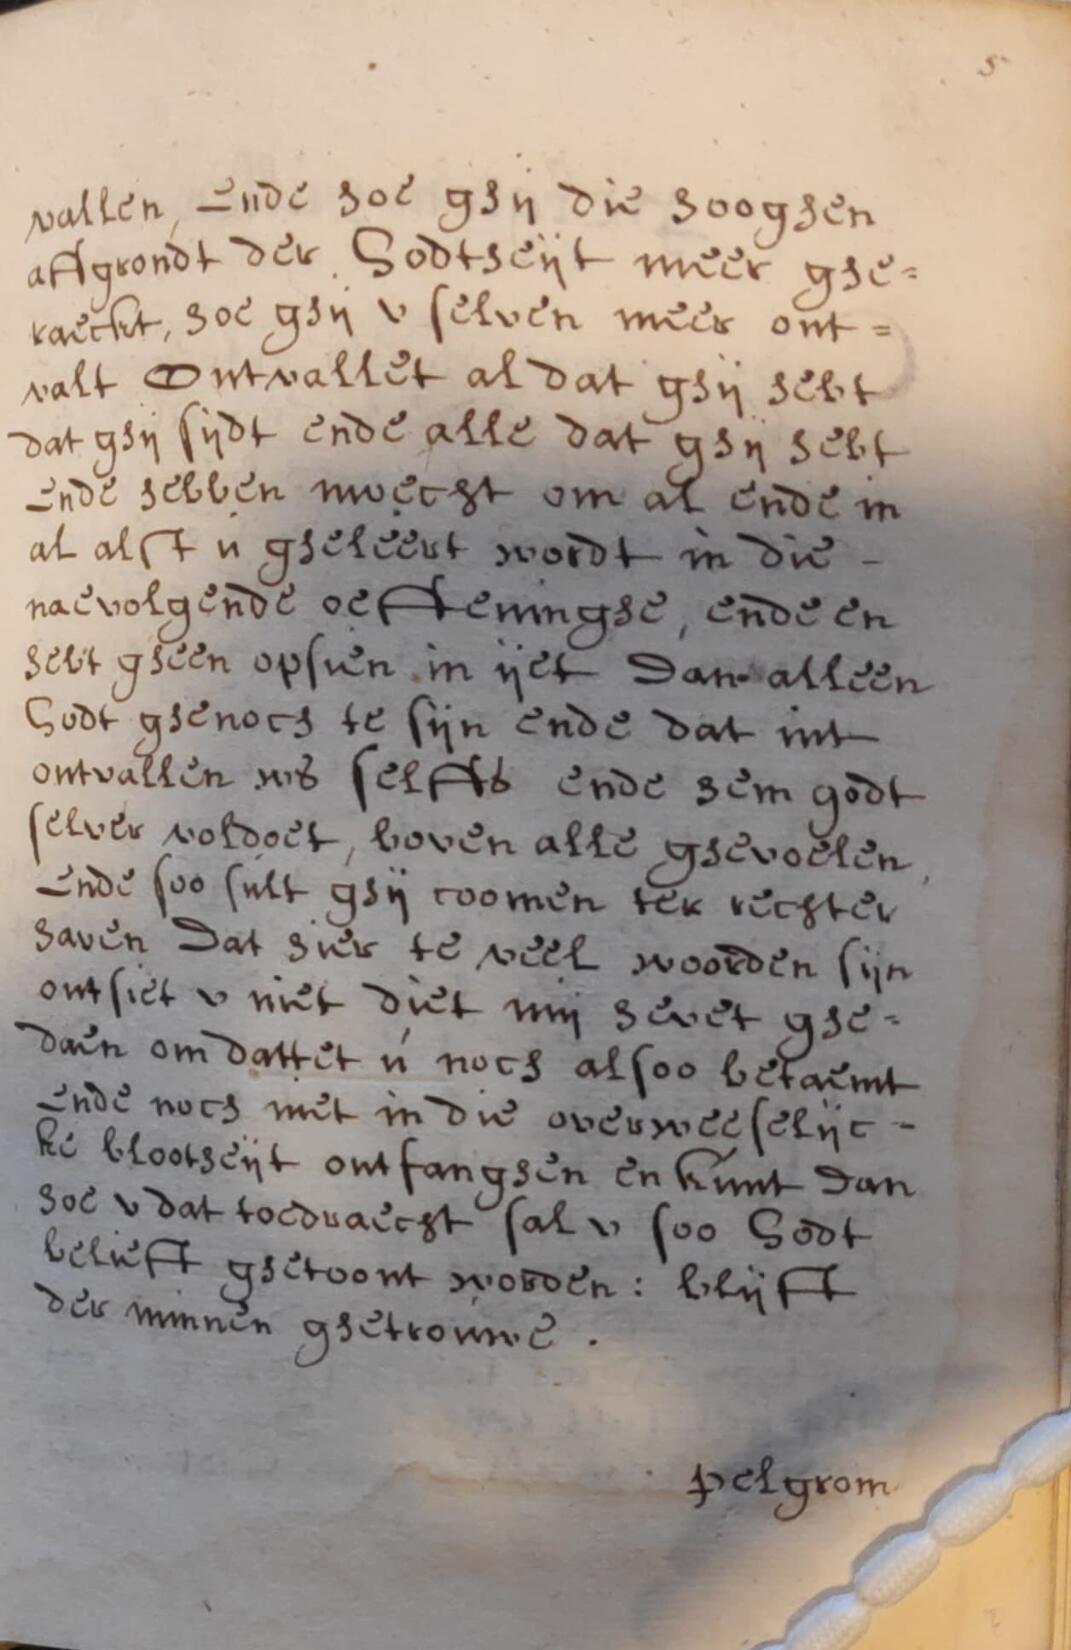 5
vallen, Ende hoe ghij die hooghen
affgrondt der Godtheijt meer ghe=
raeckt, hoe ghij v selven meer ont=
valt Ontvallet al dat ghij hebt
dat ghij sijdt ende alle dat ghij hebt
Ende hebben moecht om al ende in
al alst ú gheleert wordt in die -
naevolgende oeffeninghe, ende en
hebt gheen opsien in ijet Dan alleen
Godt ghenoch te sijn ende dat int
ontvallen ws selffs ende hem godt
selver voldoet, boven alle ghevoelen,
Ende soo sult ghij coomen ter rechter
haven Dat hier te veel woorden sijn
ontsiet v niet diet mij hevet ghe=
daen om dattet ú noch alsoo betaemt
Ende noch niet in die overweeselijc-
ke blootheijt ontfanghen en kunt Dan
hoe v dat toedraecht sal v soo Godt
belieft ghetoont worden : blijft
der minnen ghetrouwe .
pelgrom